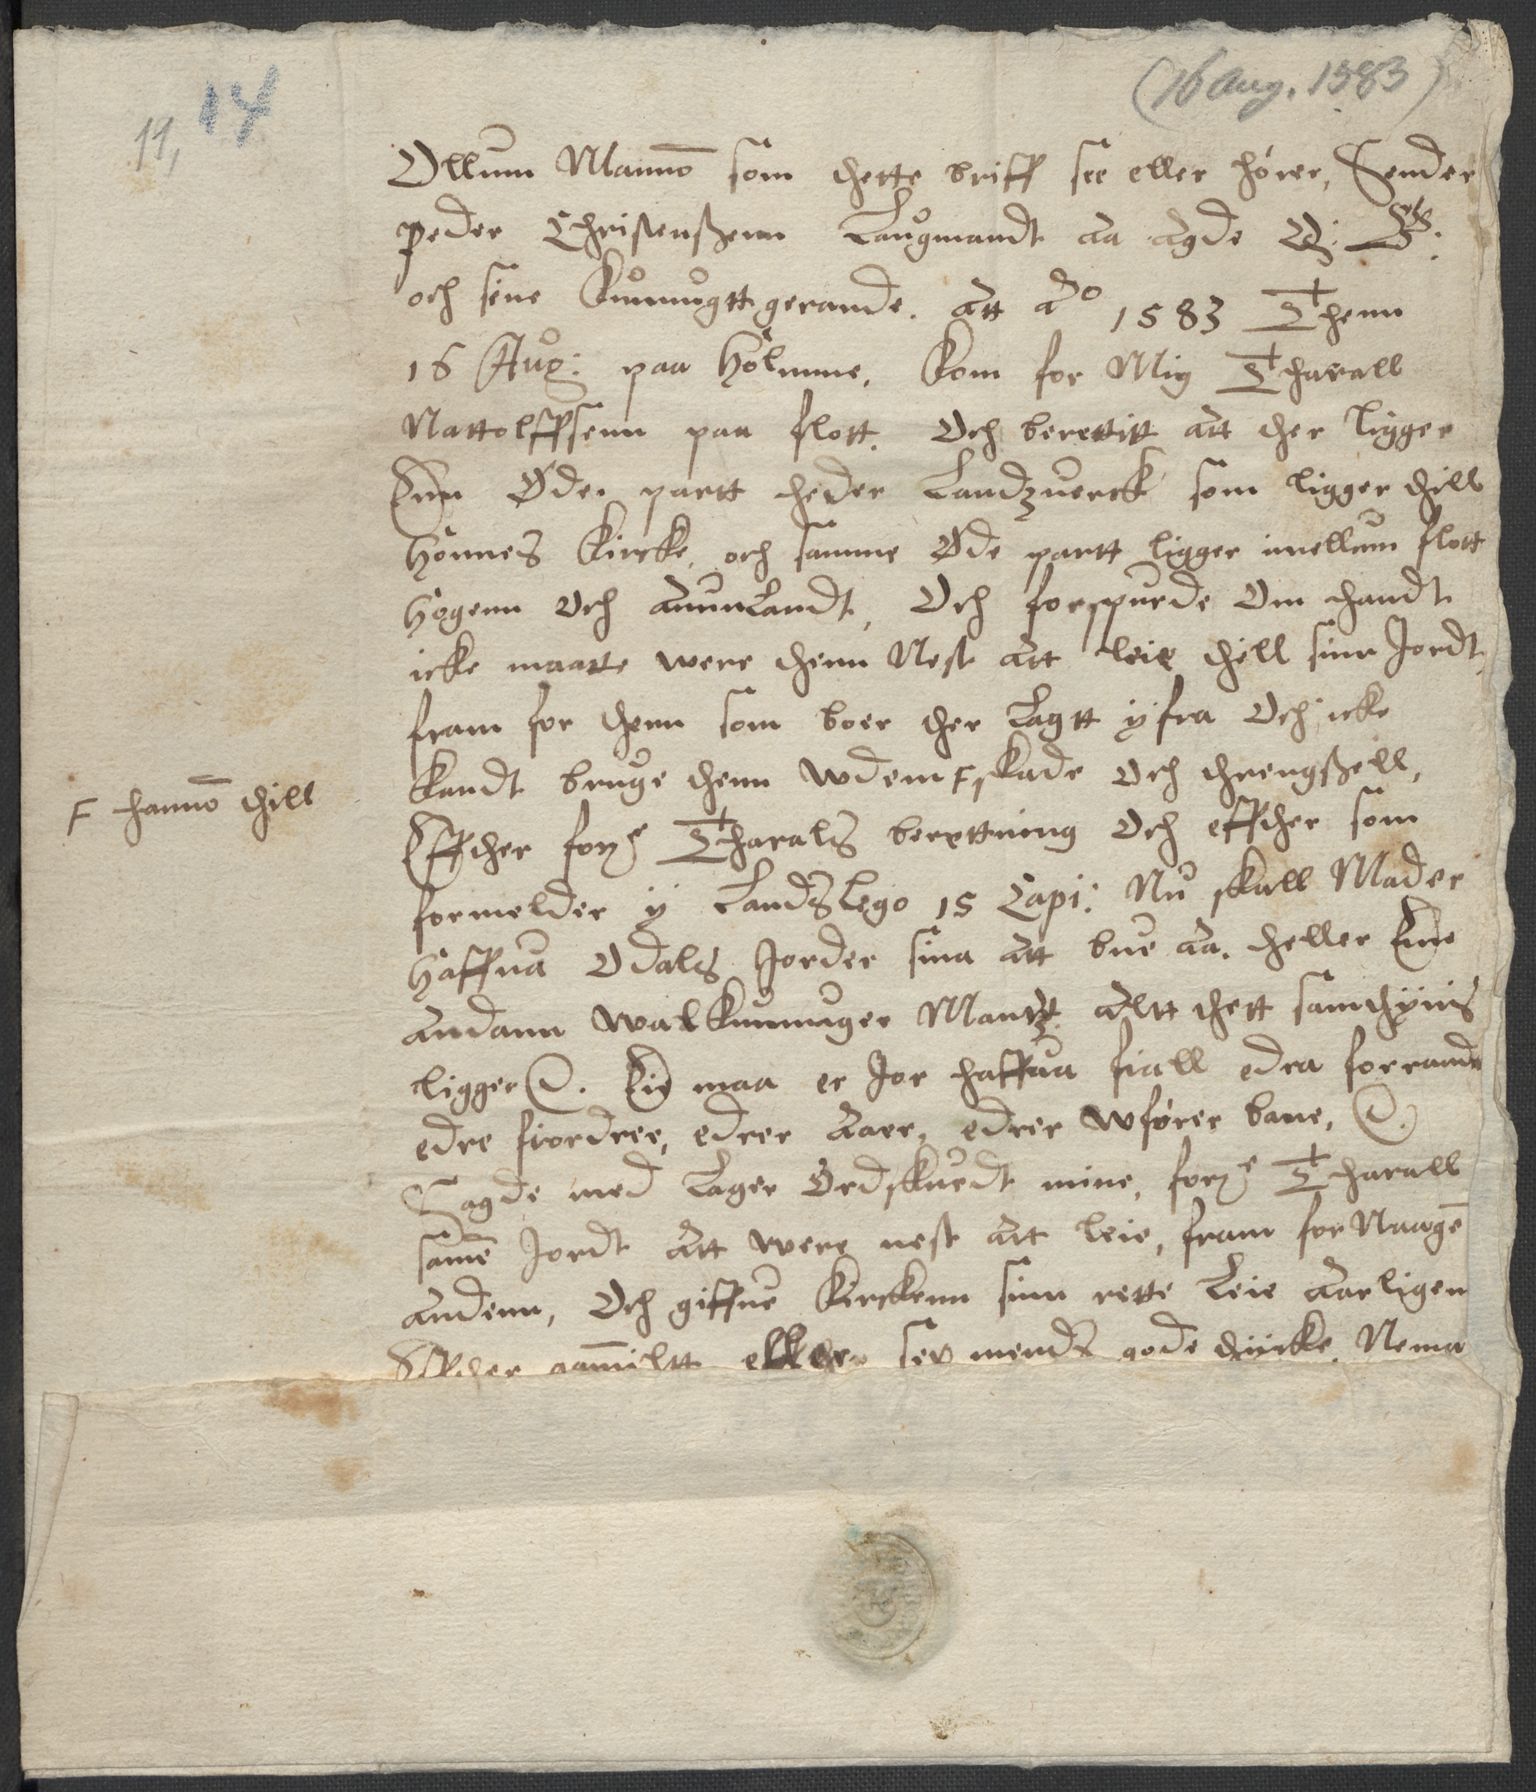 (16 Aug. 1583)
11, 14
Ollum Mannō som thette breff see eller hører, Sender
Peder Christenßenn Laugmandt aa Agde
och sine Kunnugtt gerande. Att Aº 1583 Thenn
16 Aug: paa Holmme, Kom for Mig Tharall
Nattolffsenn paa flott. Och berettitt att ther ligger
Enn Øde partt heder Landzuerck som ligger thill
Honnes Kircke, och samme Øde partt ligger imellum flott
Hogenn Och Aunnlandt, Och forspurde Om handt
icke maatte were thenn Nest Att leie thill sinn Jordt
fram for thenn som boer ther Lagtt ÿ fra Och icke
kandt bruge thenn wdenn F skade Och threngßell,
F hannō thill
Effther forne Tharals berettning Och effther som
formelder ÿ Landslego 15 Capi: Nu skall Mader
Haffua Odals Jorder sina att bue aa. heller Enn
andann walkunnuger Mandt altt thett samthÿnis
ligger. Ei maa er Jor haffua fiall edra forrande
edre fiordree, edrer Aaer, edrer wfører bane,
Sagde med Lager Ordskuedt mine, forne Tharall
samē Jordt Att were nest Att leie, fram for Naagē
andenn, Och giffue Kirckenn sinn rette Leie Aarligen
Effther gammiltt eller sex mends gode thÿcke. Nema